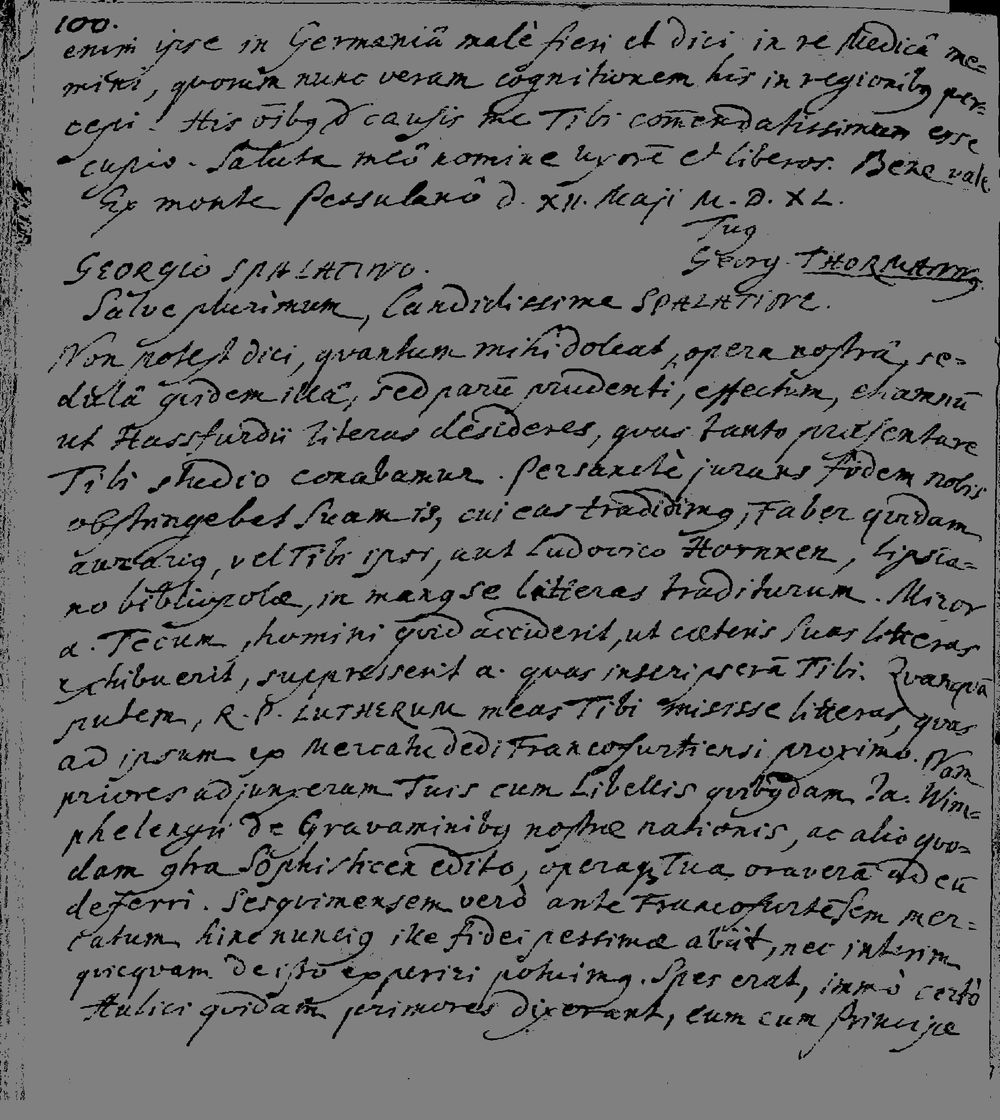 100.
enim ipse in Germaniâ malè fieri et dici in re Medicâ me=
mini, quorum nunc veram cognitionem his in regionibq per=
cepi. His oībq d causis me Tibi com̄endatissimum esse
cupio. Saluta meô nomine uxorē et liberos. Bene vale.
Ex monte Pessulanô d. XII. Maji M. D. XL.
Tuq
Georg. THORMANNq.
GEORGIO SPALATINO.
Salve plurimum, Candidissime SPALATINE.
Non potest dici, quantum mihi doleat, opera nostrâ, se=
dulâ quidem illâ, sed parū prudenti, effectum, etiamnū
ut Hassfurdii literas desideres, quas tanto præsentare
Tibi studio conabamur. Persanctè jurans fidem nobis
obstringebat suam is, cui eas tradidimq, Faber quidam
aurariq, vel Tibi ipsi, aut Ludovico Hornken, Lipsia=
no bibliopolæ, in manq se litteras traditurum. Miror
a. Tecum, homini quid acciderit, ut cæteris suas litteras
exhibuerit, suppresserit a. quas inscripserā Tibi. Quanquā
putem, R. P. LUTHERUM meas Tibi misisse litteras, quas
ad ipsum ex Mercatu dedi Francofurtiensi proximo. Nam
priores adjunxeram Tuis cum Libellis quibqdam Ja. Wim=
phelengii de Gravaminibq nostræ nationis, ac alio quo=
dam ꝯtra Sophisticen edito, operaq Tua oraverā ad eū
deferri. Sesquimensem verò ante Francofurtēsem mer=
catum hinc nunciq ille fidei pessimæ abiit, nec interim
quicquam de isto experiri potuimq. Spes erat, immò certò
Aulici quidam primores dixerant, eum cum Principe